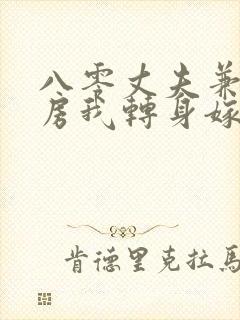 八零丈夫兼
房我轉身嫁
肯德里克拉馬